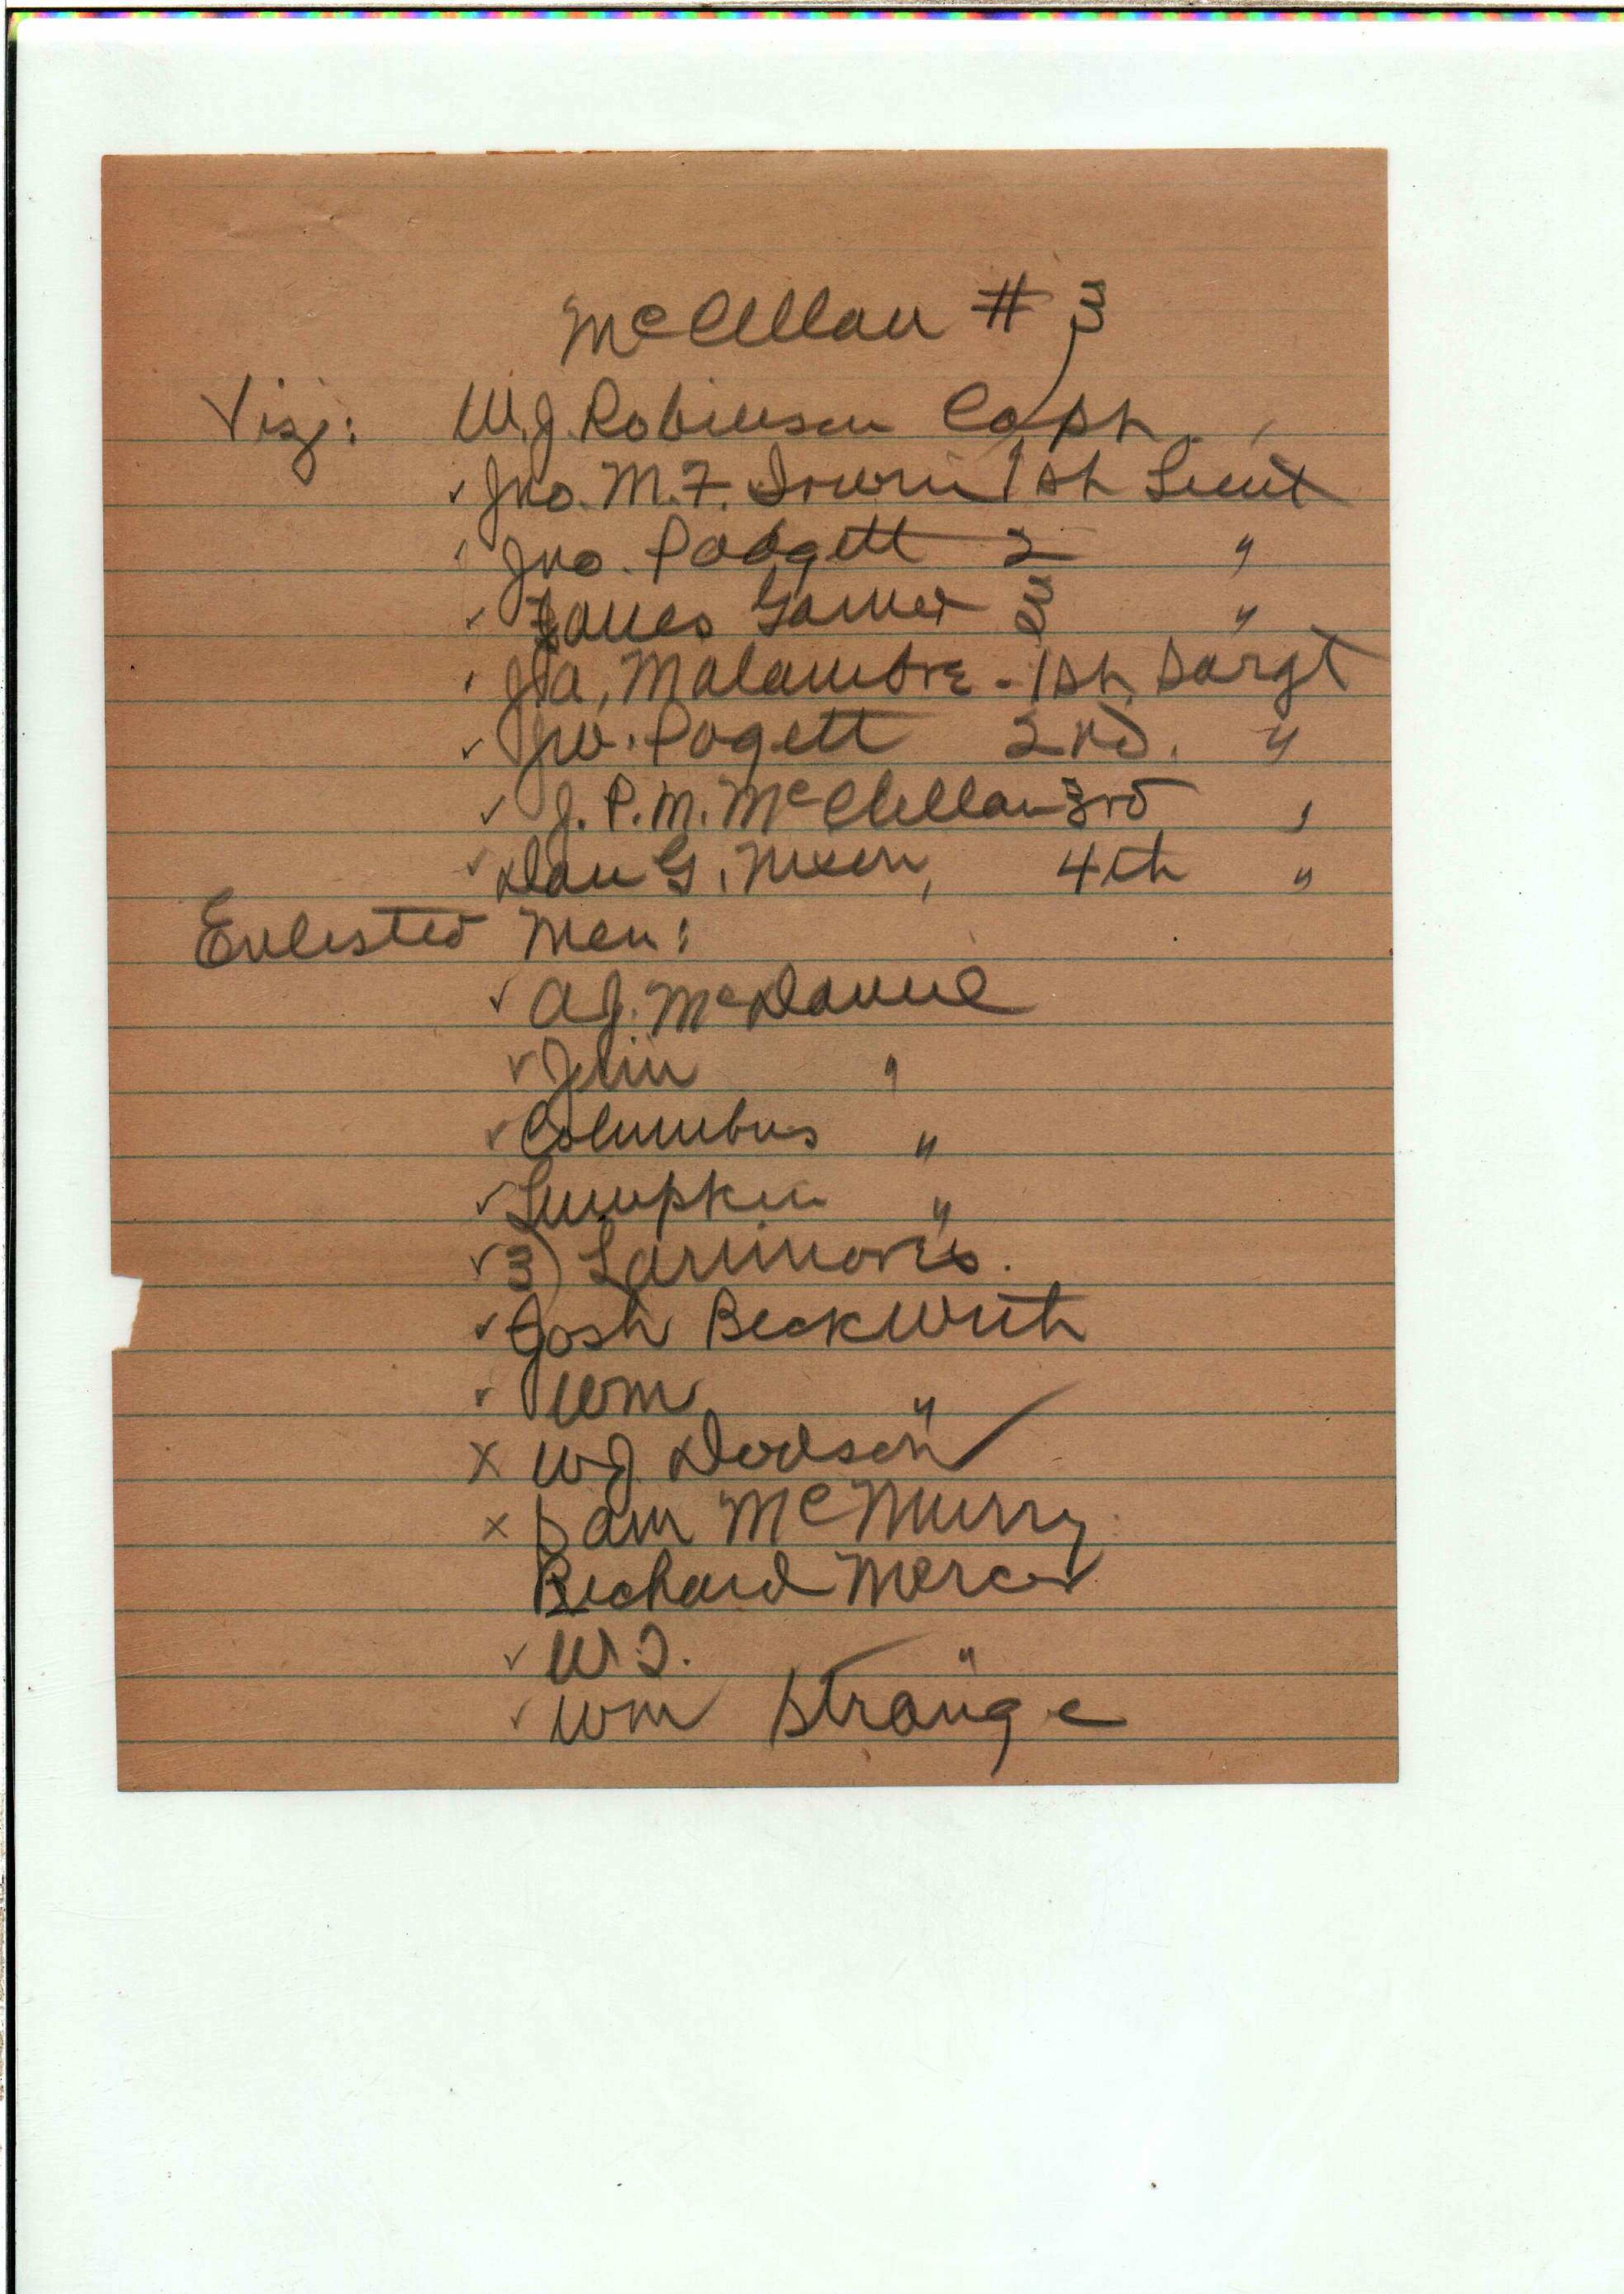 McClellan # 3
Viz: W.J. Robinson Capt.
✓ Jno. M.F. Irwin 1st Lieut
✓ Jno. Padgett 2 "
✓ James Garner 3 "
✓ J.A, Malambre - 1st, Sargt
✓ Jno. Pagett 2nd. "
✓ J. P. M. McClellan 3rd "
✓ Dan G. Nixon, 4th "
Enlisted Men:
✓ A J. McDanne
✓ John "
✓ Columbus "
✓ Lumpkin "
✓ 3) Larimores.
✓ Josh Beckwith
✓ Wm "
x W J Dodson ✓
x Sam McMurry
Richard Mercer
✓ W. T. "
✓ Wm Strange